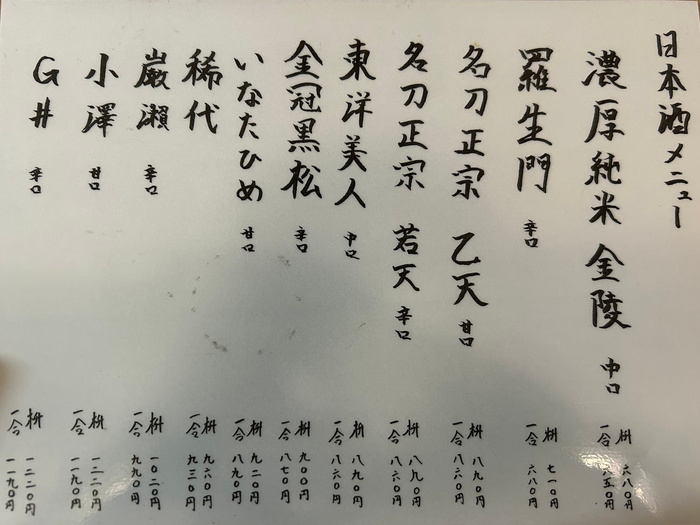 日本酒メニュー
濃厚純米 金陵 中口
枡 六八〇円
一合 八五〇円
羅生門 辛口
枡 七一〇円
一合 六八〇円
名刀正宗 乙天 甘口
枡 八九〇円
一合 八六〇円
名刀正宗 若天 辛口
枡 八九〇円
一合 八六〇円
東洋美人 中口
枡 八九〇円
一合 八六〇円
金冠黒松 辛口
枡 九〇〇円
一合 八七〇円
いなたひめ 甘口
枡 九二〇円
一合 八九〇円
稀代
枡 九六〇円
一合 九三〇円
巌瀬 辛口
枡 一〇二〇円
一合 九九〇円
小澤 甘口
枡 一二二〇円
一合 一一九〇円
G井 辛口
枡 一二二〇円
一合 一一九〇円